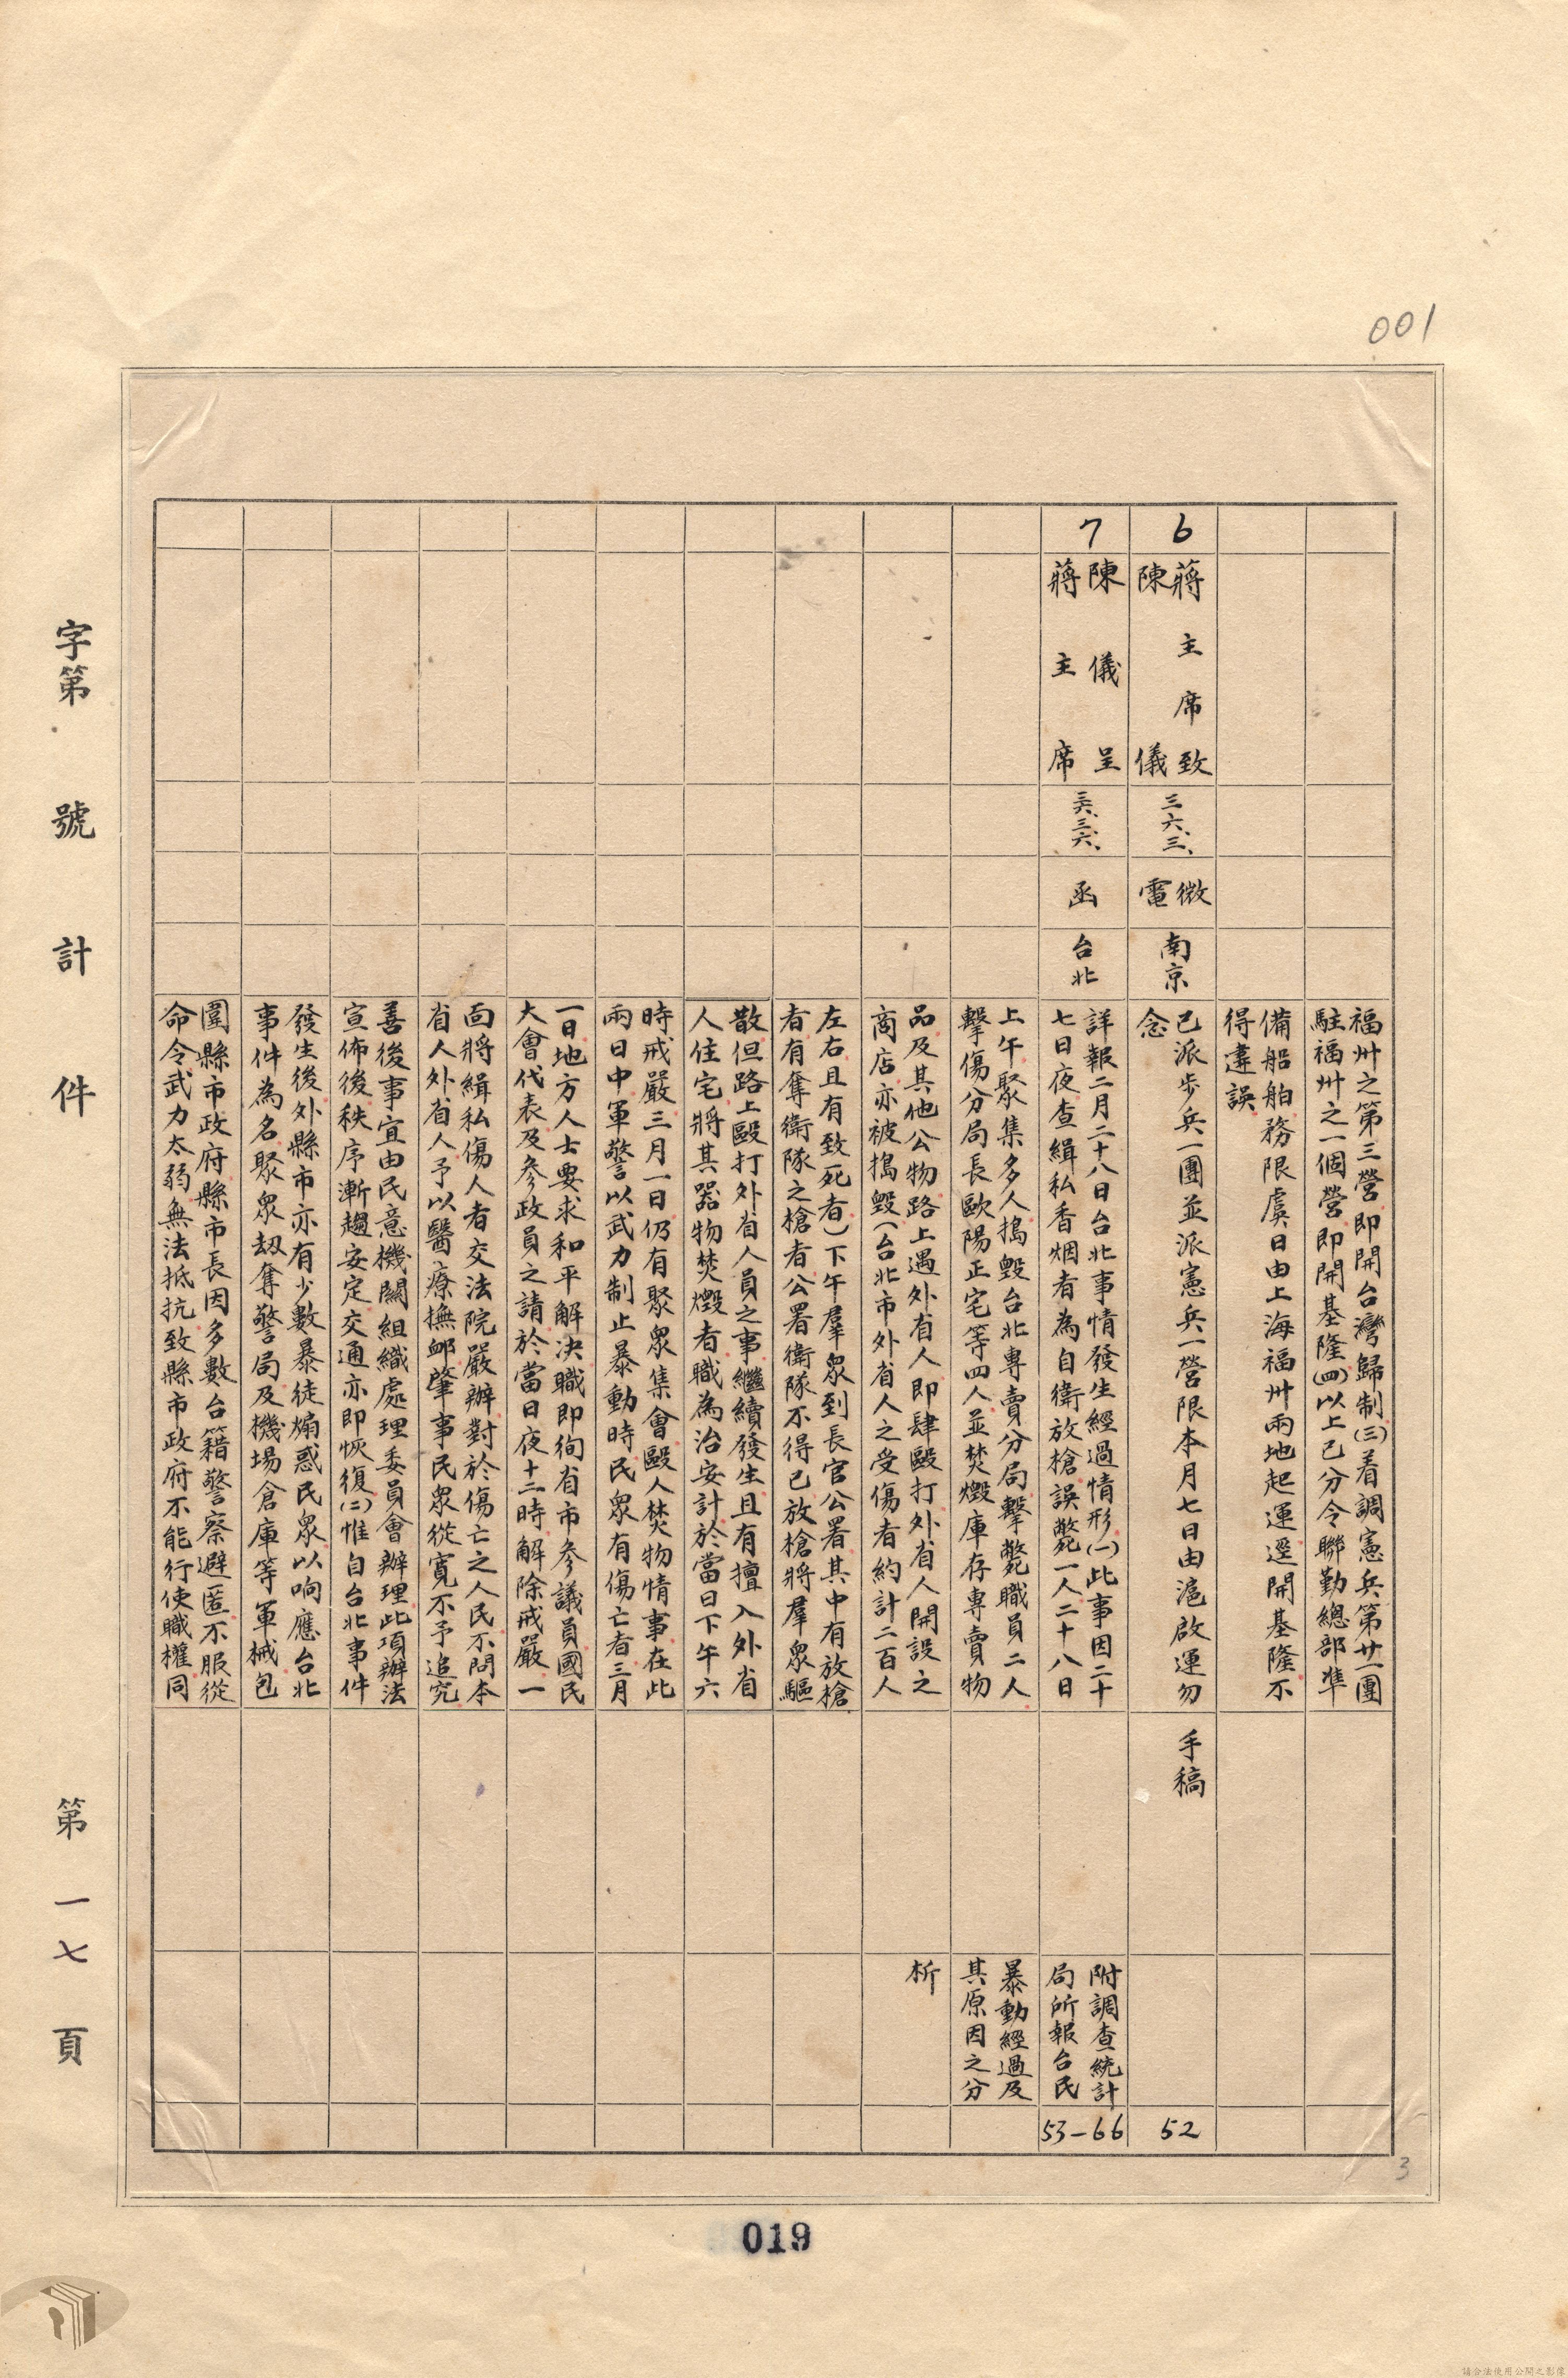 001
福州之第三營即開台灣歸制(三)着調憲兵第廿一團
駐福州之一個營即開基隆(四)以上已分令聯勤總部準
備船舶務限虞日由上海福州兩地起運逕開基隆不
得違誤
6
蔣主席致
陳儀
三六、三、
微電
南京
已派步兵一團並派憲兵一營限本月七日由滬啟運勿
念
手稿
52
7
陳儀呈
蔣主席
三六、三、六、
函
台北
詳報二月二十八日台北事情發生經過情形(一)此事因二十
七日夜查緝私香烟者為自衛放槍誤斃一人二十八日
上午聚集多人搗毀台北專賣分局擊斃職員二人
擊傷分局長歐陽正宅等四人並焚燬庫存專賣物
品及其他公物路上遇外省人即肆毆打外省人開設之
商店亦被搗毀(台北市外省人之受傷者約計二百人
左右且有致死者)下午羣眾到長官公署其中有放槍
者有奪衛隊之槍者公署衛隊不得已放槍將羣眾驅
散但路上毆打外省人員之事繼續發生且有擅入外省
人住宅將其器物焚燬者職為治安計於當日下午六
時戒嚴三月一日仍有聚眾集會毆人焚物情事在此
兩日中軍警以武力制止暴動時民眾有傷亡者三月
一日地方人士要求和平解決職即徇省市參議員國民
大會代表及參政員之請於當日夜十二時解除戒嚴一
面將緝私傷人者交法院嚴辦對於傷亡之人民不問本
省人外省人予以醫療撫卹肇事民眾從寬不予追究
善後事宜由民意機關組織處理委員會辦理此項辦法
宣佈後秩序漸趨安定交通亦即恢復(二)惟自台北事件
發生後外縣市亦有少數暴徒煽惑民眾以响應台北
事件為名聚眾劫奪警局及機場倉庫等軍械包
圍縣市政府縣市長因多數台籍警察避匿不服從
命令武力太弱無法抵抗致縣市政府不能行使職權同
附調查統計
局所報台民
暴動經過及
其原因之分
析
53-66
字第 號計 件
第一七頁
3
019
請合法使用公開之影像